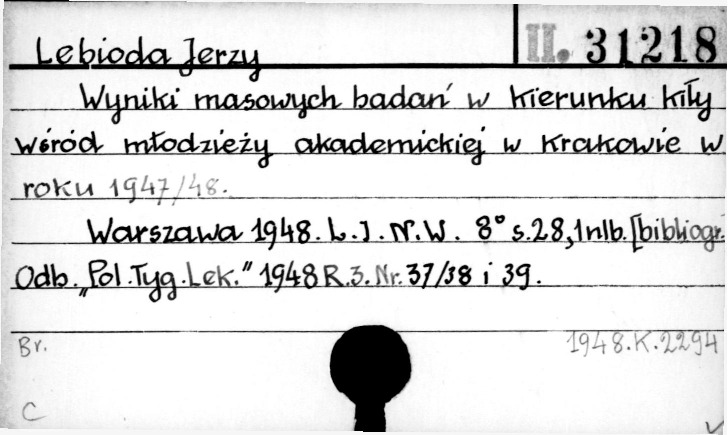 Lebioda Jerzy II. 31218
Wyniki masowych badań w kierunku kiły
wśród młodzieży akademickiej w Krakowie w
roku 1947/48.
Warszawa 1948. L.I.N.W. 8° s.28,1nlb.[bibliogr.
Odb. „Pol.Tyg.Lek.” 1948 R.3. Nr. 37/38 i 39.
Br. 1948.K.2294
C